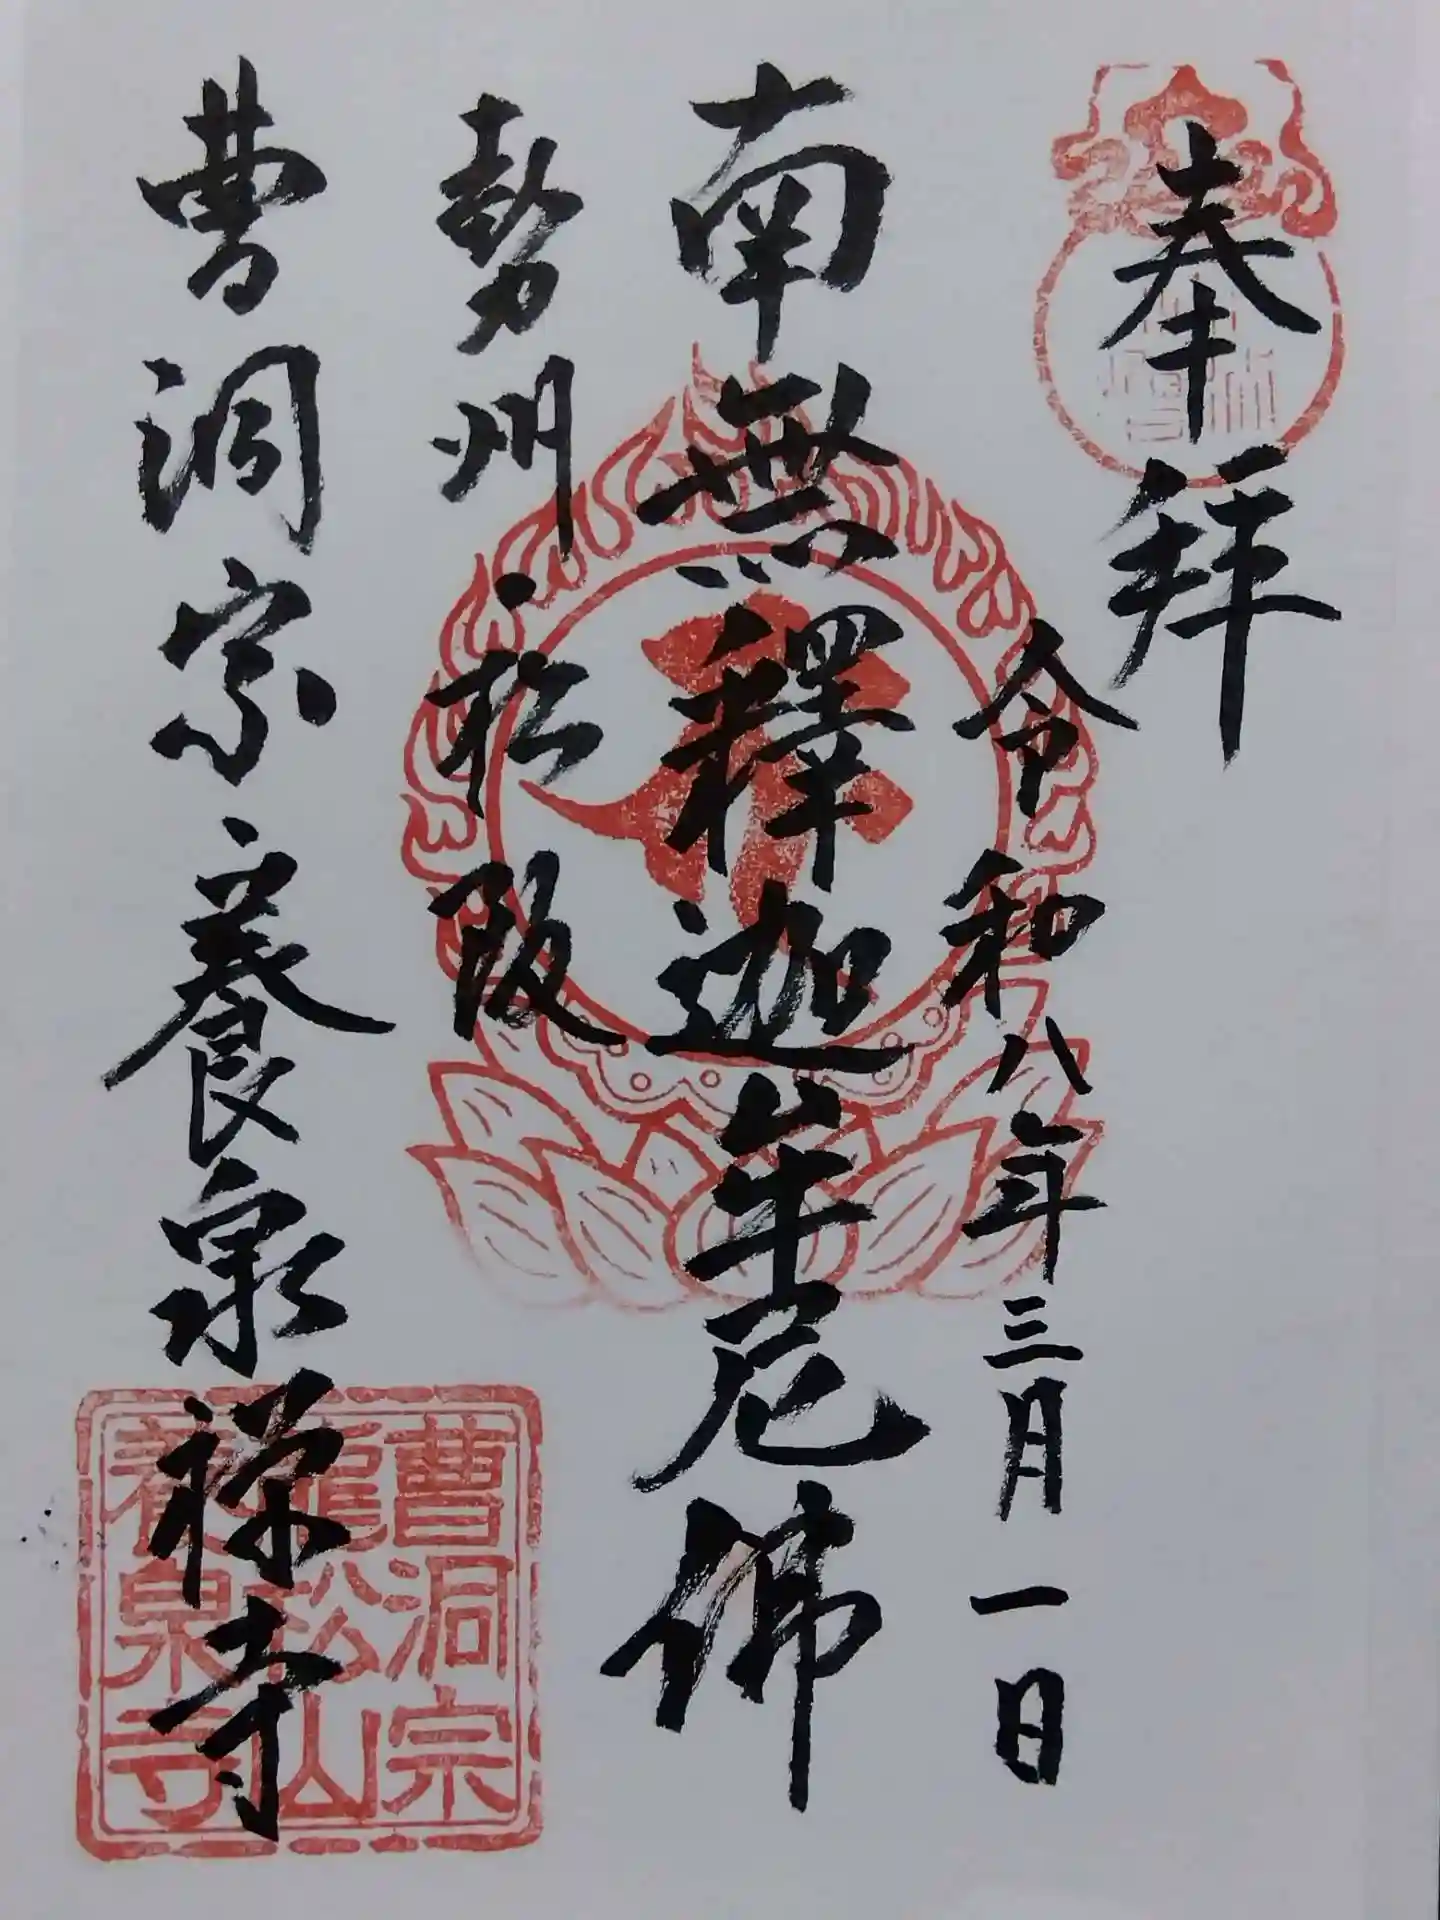 奉拜
令和八年三月一日
南無釋迦牟尼佛
勢州 松阪
曹洞宗 養泉禅寺
曹洞宗
龍松山
養泉寺